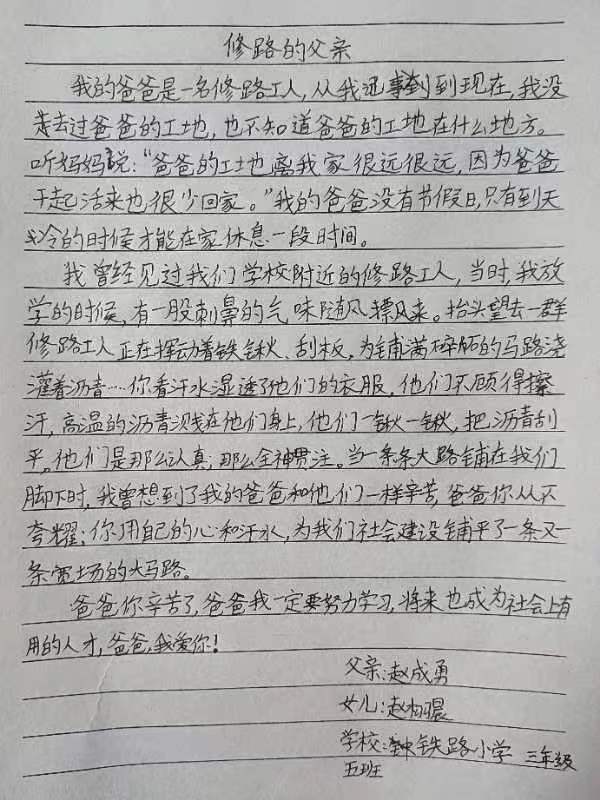 修路的父亲
我的爸爸是一名修路工人,从我记事到到现在,我没
走去过爸爸的工地,也不知道爸爸的工地在什么地方。
听妈妈说:“爸爸的工地离我家很远很远,因为爸爸
干起活来也很少回家。”我的爸爸没有节假日,只有到天
冷的时候才能在家休息一段时间。
我曾经见过我们学校附近的修路工人,当时,我放
学的时候,有一股刺鼻的气味随风飘风来。抬头望去一群
修路工人正在挥动着铁锹、刮板,为铺满碎的马路浇
灌着沥青……你看汗水湿透了他们的衣服,他们不顾得擦
汗,高温的沥青溅在他们身上,他们一锹一锹,把沥青刮
平。他们是那么认真;那么全神贯注。当一条条大路铺在我们
脚下时,我曾想到了我的爸爸和他们一样辛苦,爸爸你从不
夸耀;你用自己的心和汗水,为我们社会建设铺平了一条又一
条宽场的大马路。
爸爸你辛苦了,爸爸我一定要努力学习,将来也成为社会上有
用的人才,爸爸,我爱你!
父亲:赵成勇
女儿:赵
学校:钟铁路小学 三年级
五班